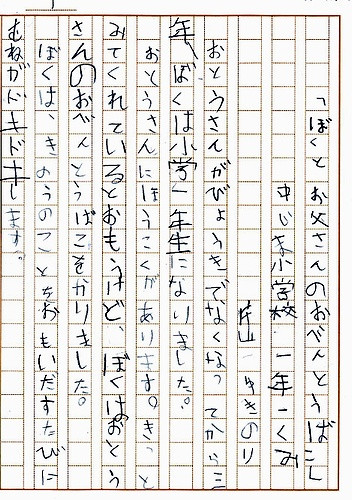 「ぼくとお父さんのおべんとうばこ」
小学校 一年一くみ
片山 ゆきのり
おとうさんがびょうきでなくなってから三
年、ぼくは小学一年生になりました。
おとうさんにほうこくがあります。きっと
みてくれているとおもうけど、ぼくはおとう
さんのおべんとうばこをかりました。
ぼくは、きのうのことをおもいだすたびに
むねがドキドキします。